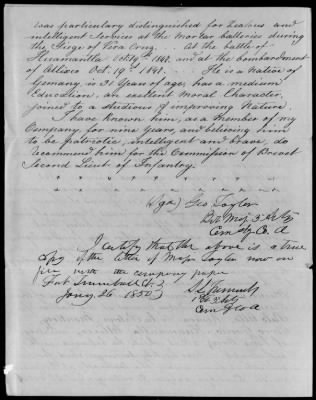 was particularly distinguished for Zealous and
intelligent Services at the Mortar batteries during
the Siege of Vera Cruz ... At the battle of
Huamantla Oct. 9th 1847, and at the bombardment
of Atlixco Oct. 19th 1847. ... He is a Native of
Germany, is 31 Years of age, has a medium
Education, an excellent Moral Character,
joined to a studious & improving Nature.
I have known him, as a Member of my
Company for nine years, and believing him
to be patriotic, intelligent and brave, do
recommend him for the Commission of Brevet
Second Lieut. of Infantry.
(Sgd) Geo. Taylor
Bvt Maj. 3d Arty
Com'dg Co. A
I certify that the above is a true
Copy of the letter of Major Taylor now on
file with the company papers
Fort Trumbull Ct
Jany. 26 1850
Com